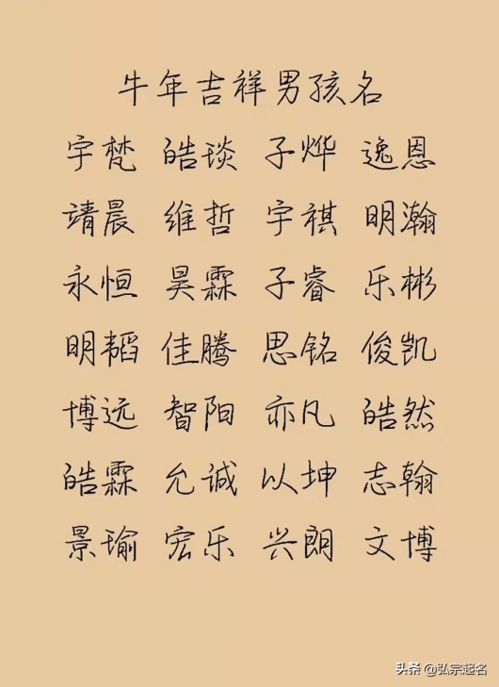 牛年吉祥男孩名
宇梵 皓琰 子烨 逸恩
靖晨 维哲 宇祺 明瀚
永恒 昊霖 子睿 乐彬
明韬 佳腾 思铭 俊凯
博远 智阳 亦凡 皓然
皓霖 允诚 以坤 志翰
景瑜 宏乐 兴朗 文博
头条 @弘宗起名